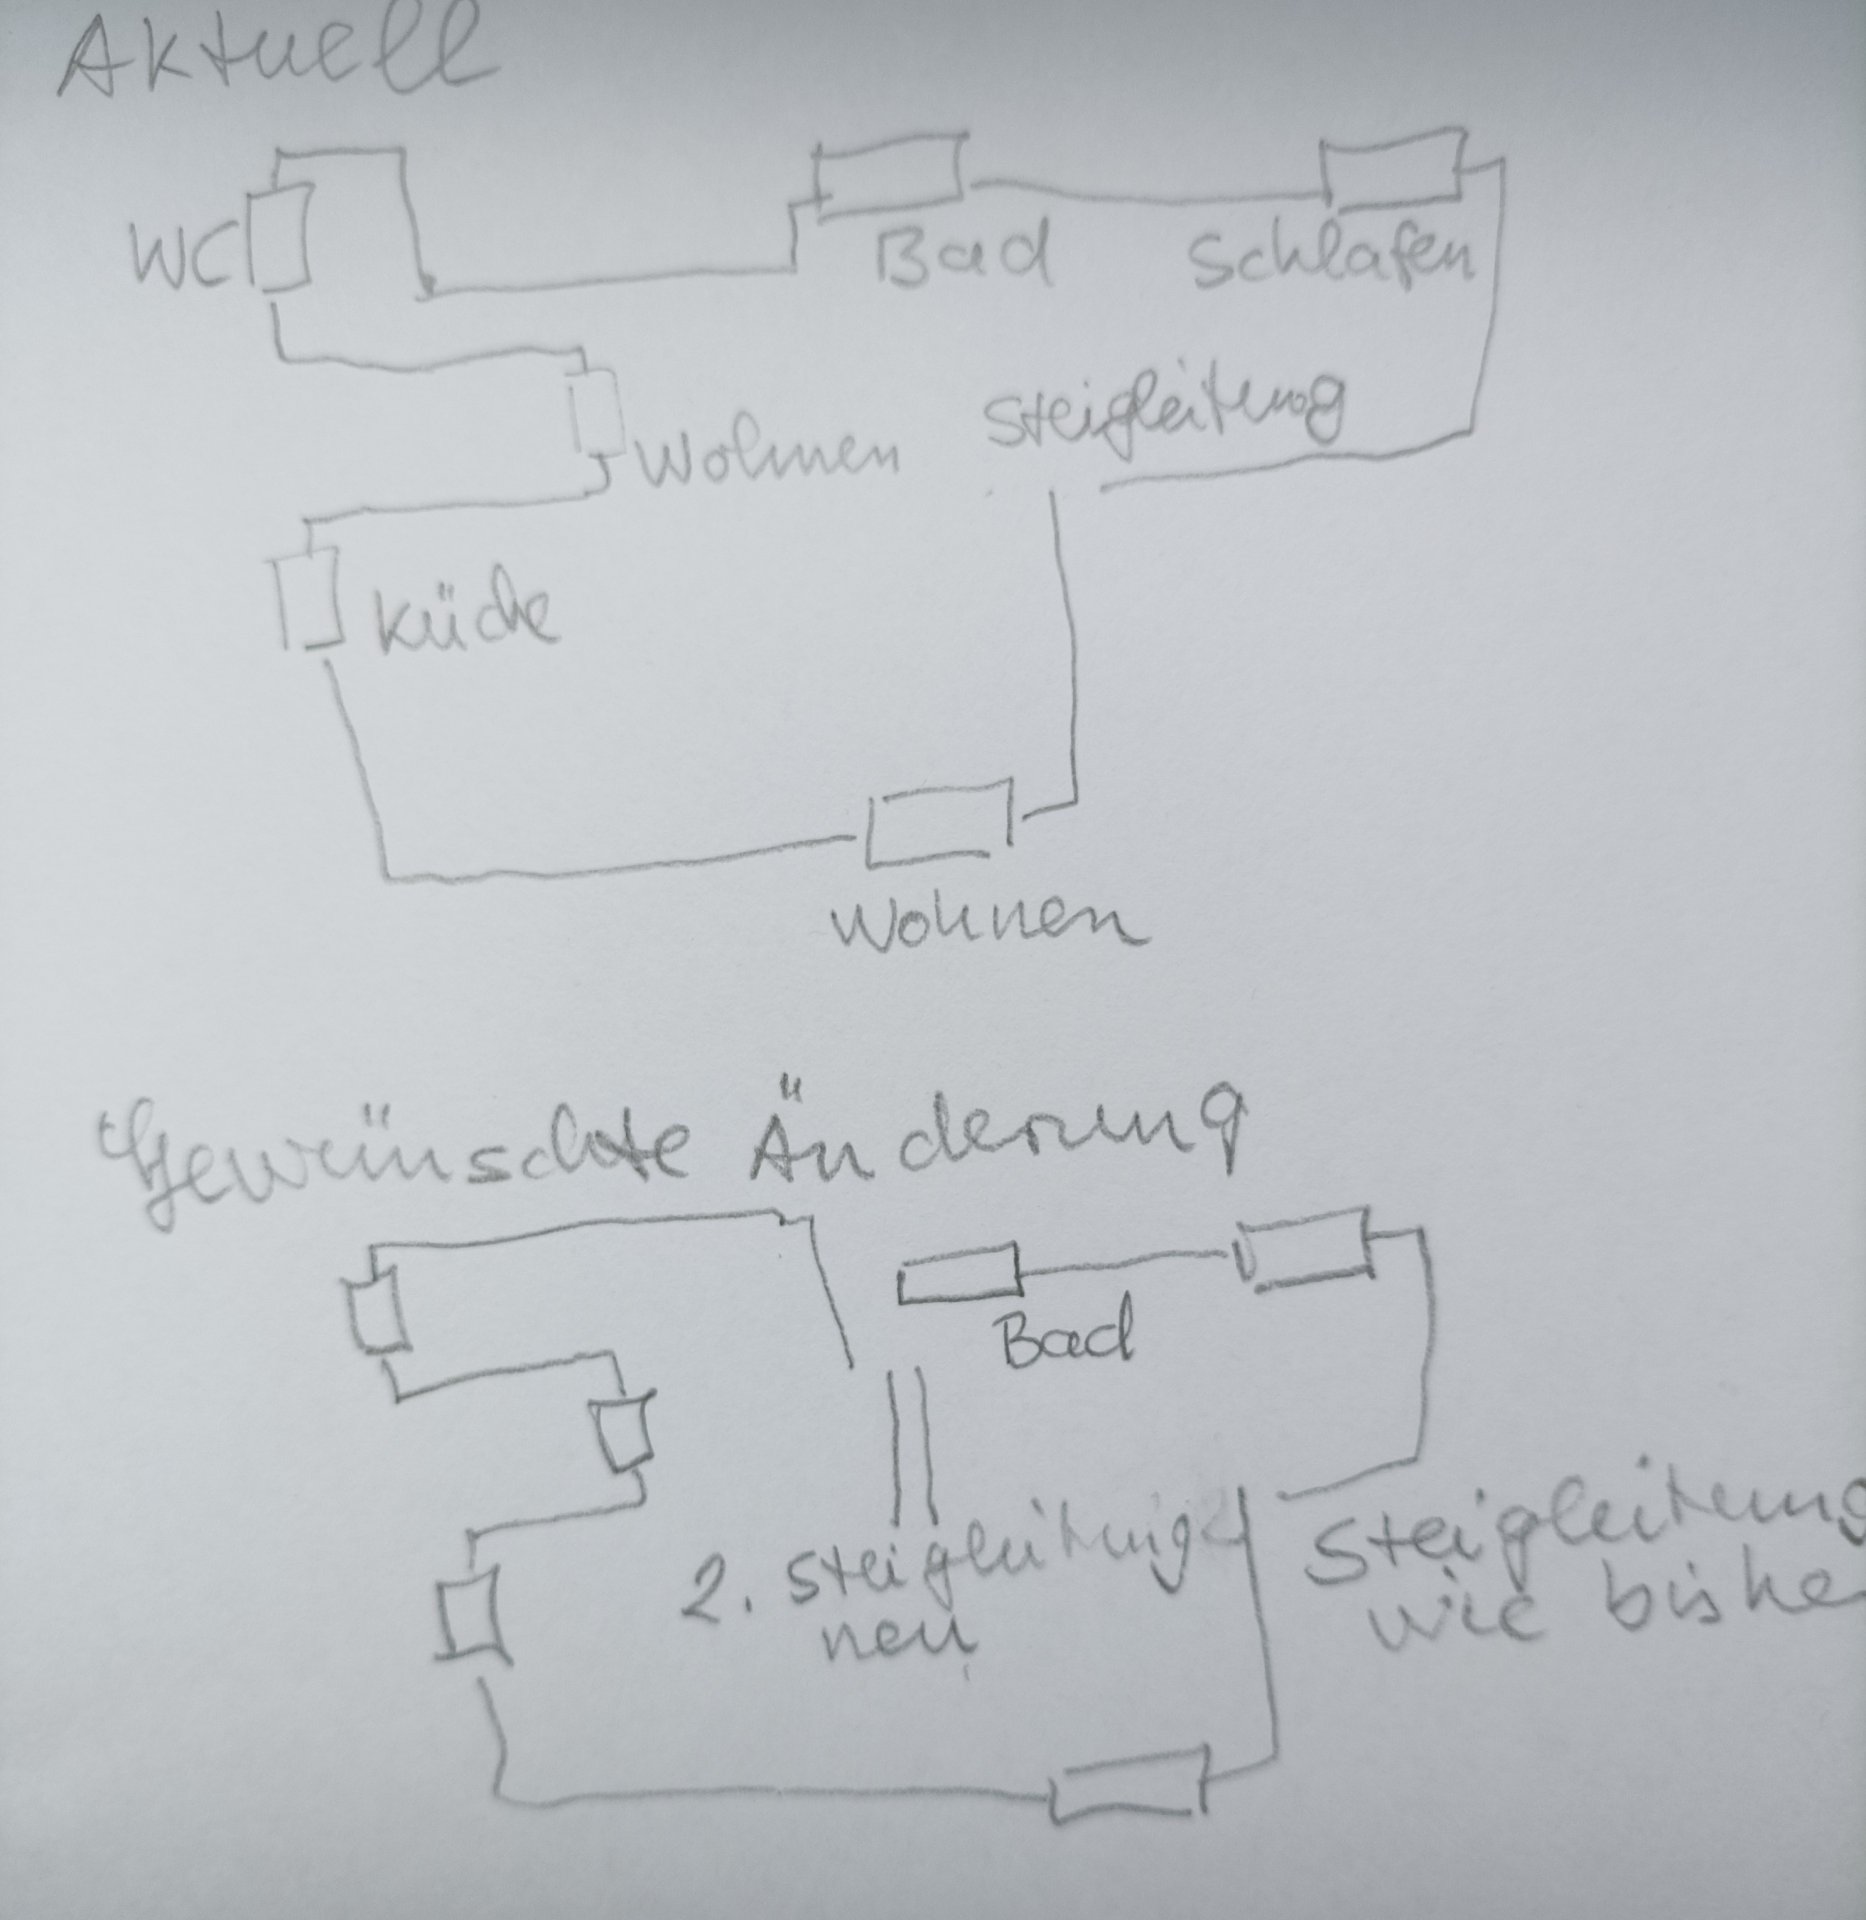 Aktuell
WC
Bad
Schlafen
Steigleitung
Wohnen
Küche
Wohnen
Gewünschte Änderung
Bad
2. Steigleitung
neu
Steigleitung
wie bisher